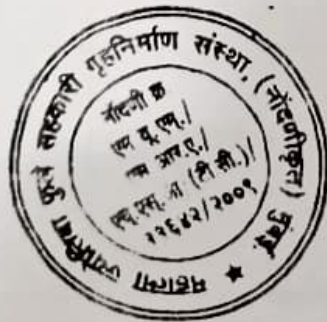 महात्मा ज्योतिबा फुले सहकारी गृहनिर्माण संस्था, (नोंदणीकृत) मुंबई. ★
नोंदणी क्र
एम यू. एम./
एम आर.ए./
एच.एस. जी (टी सी.)/
१२६४२/२००९